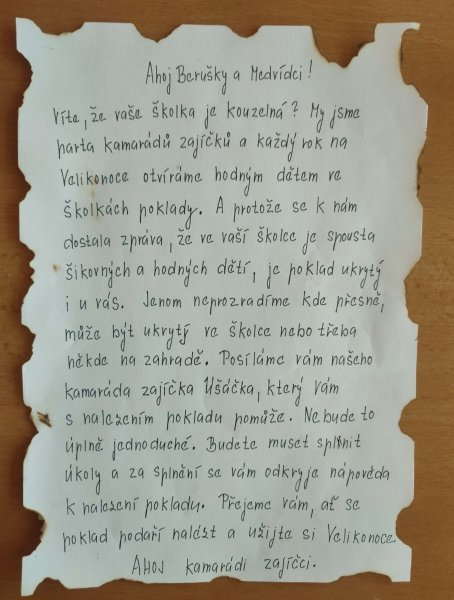 Ahoj Berušky a Medvídci!
Víte, že vaše školka je kouzelná? My jsme
parta kamarádů zajíčků a každý rok na
Velikonoce otvíráme hodným dětem ve
školkách poklady. A protože se k nám
dostala zpráva, že ve vaší školce je spousta
šikovných a hodných dětí, je poklad ukrytý
i u vás. Jenom neprozradíme kde přesně,
může být ukrytý ve školce nebo třeba
někde na zahradě. Posíláme vám našeho
kamaráda zajíčka Ušáčka, který vám
s nalezením pokladu pomůže. Nebude to
úplně jednoduché. Budete muset splnit
úkoly a za splnění se vám odkryje nápověda
k nalezení pokladu. Přejeme vám, ať se
poklad podaří nalézt a užijte si Velikonoce.
AHOJ kamarádi zajíčci.